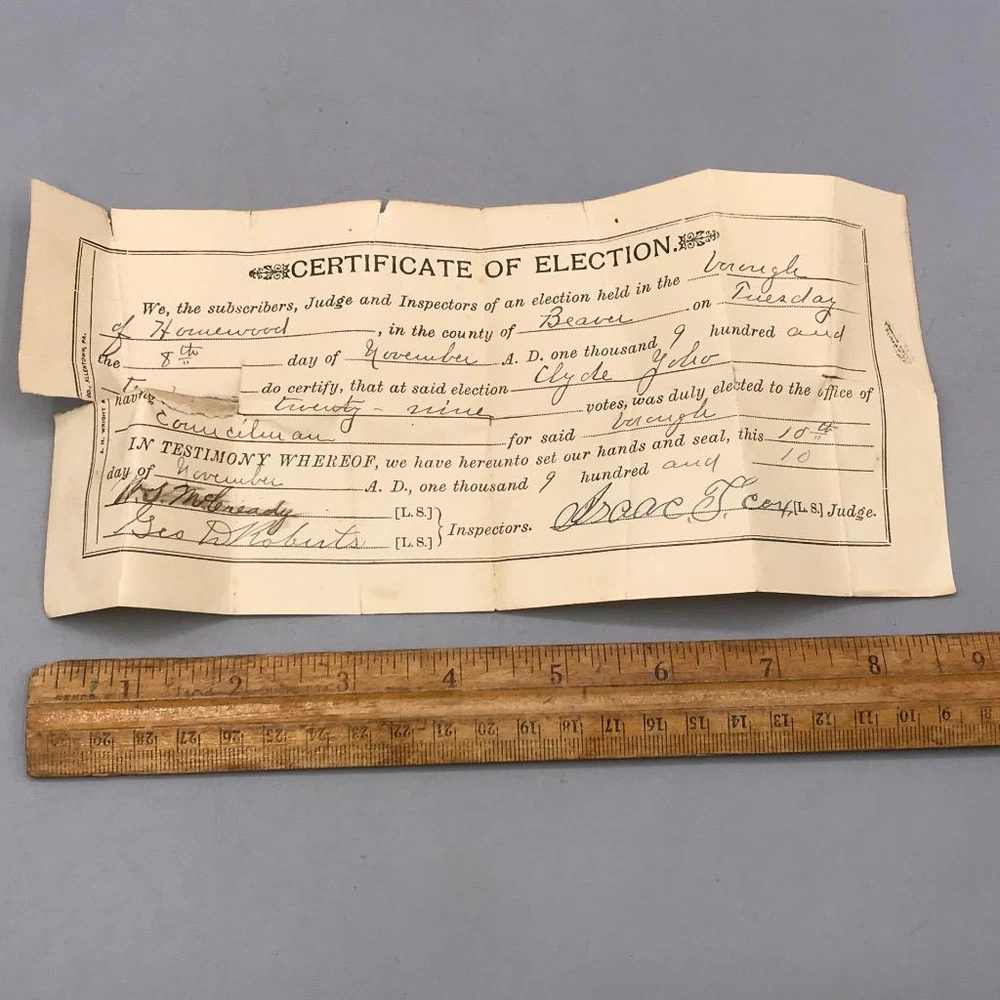 CERTIFICATE OF ELECTION.
We, the subscribers, Judge and Inspectors of an election held in the borough
of Homewood, in the county of Beaver on Tuesday
the 8th day of November A. D. one thousand 9 hundred and
do certify, that at said election Clyde Yoho
having twenty-nine votes, was duly elected to the office of
Councilman for said borough
IN TESTIMONY WHEREOF, we have hereunto set our hands and seal, this 10th
day of November A. D., one thousand 9 hundred and 10
W. S. McCready [L. S.]
Geo D Roberts [L. S.] } Inspectors. Isaac. T. Cox, [L. S.] Judge.
A. H. WRIGHT &
CO., ALLENTOWN, PA.
1 2 3 4 5 6 7 8 9
29 28 27 26 25 24 23 22 21 20 19 18 17 16 15 14 13 12 11 10 9 8